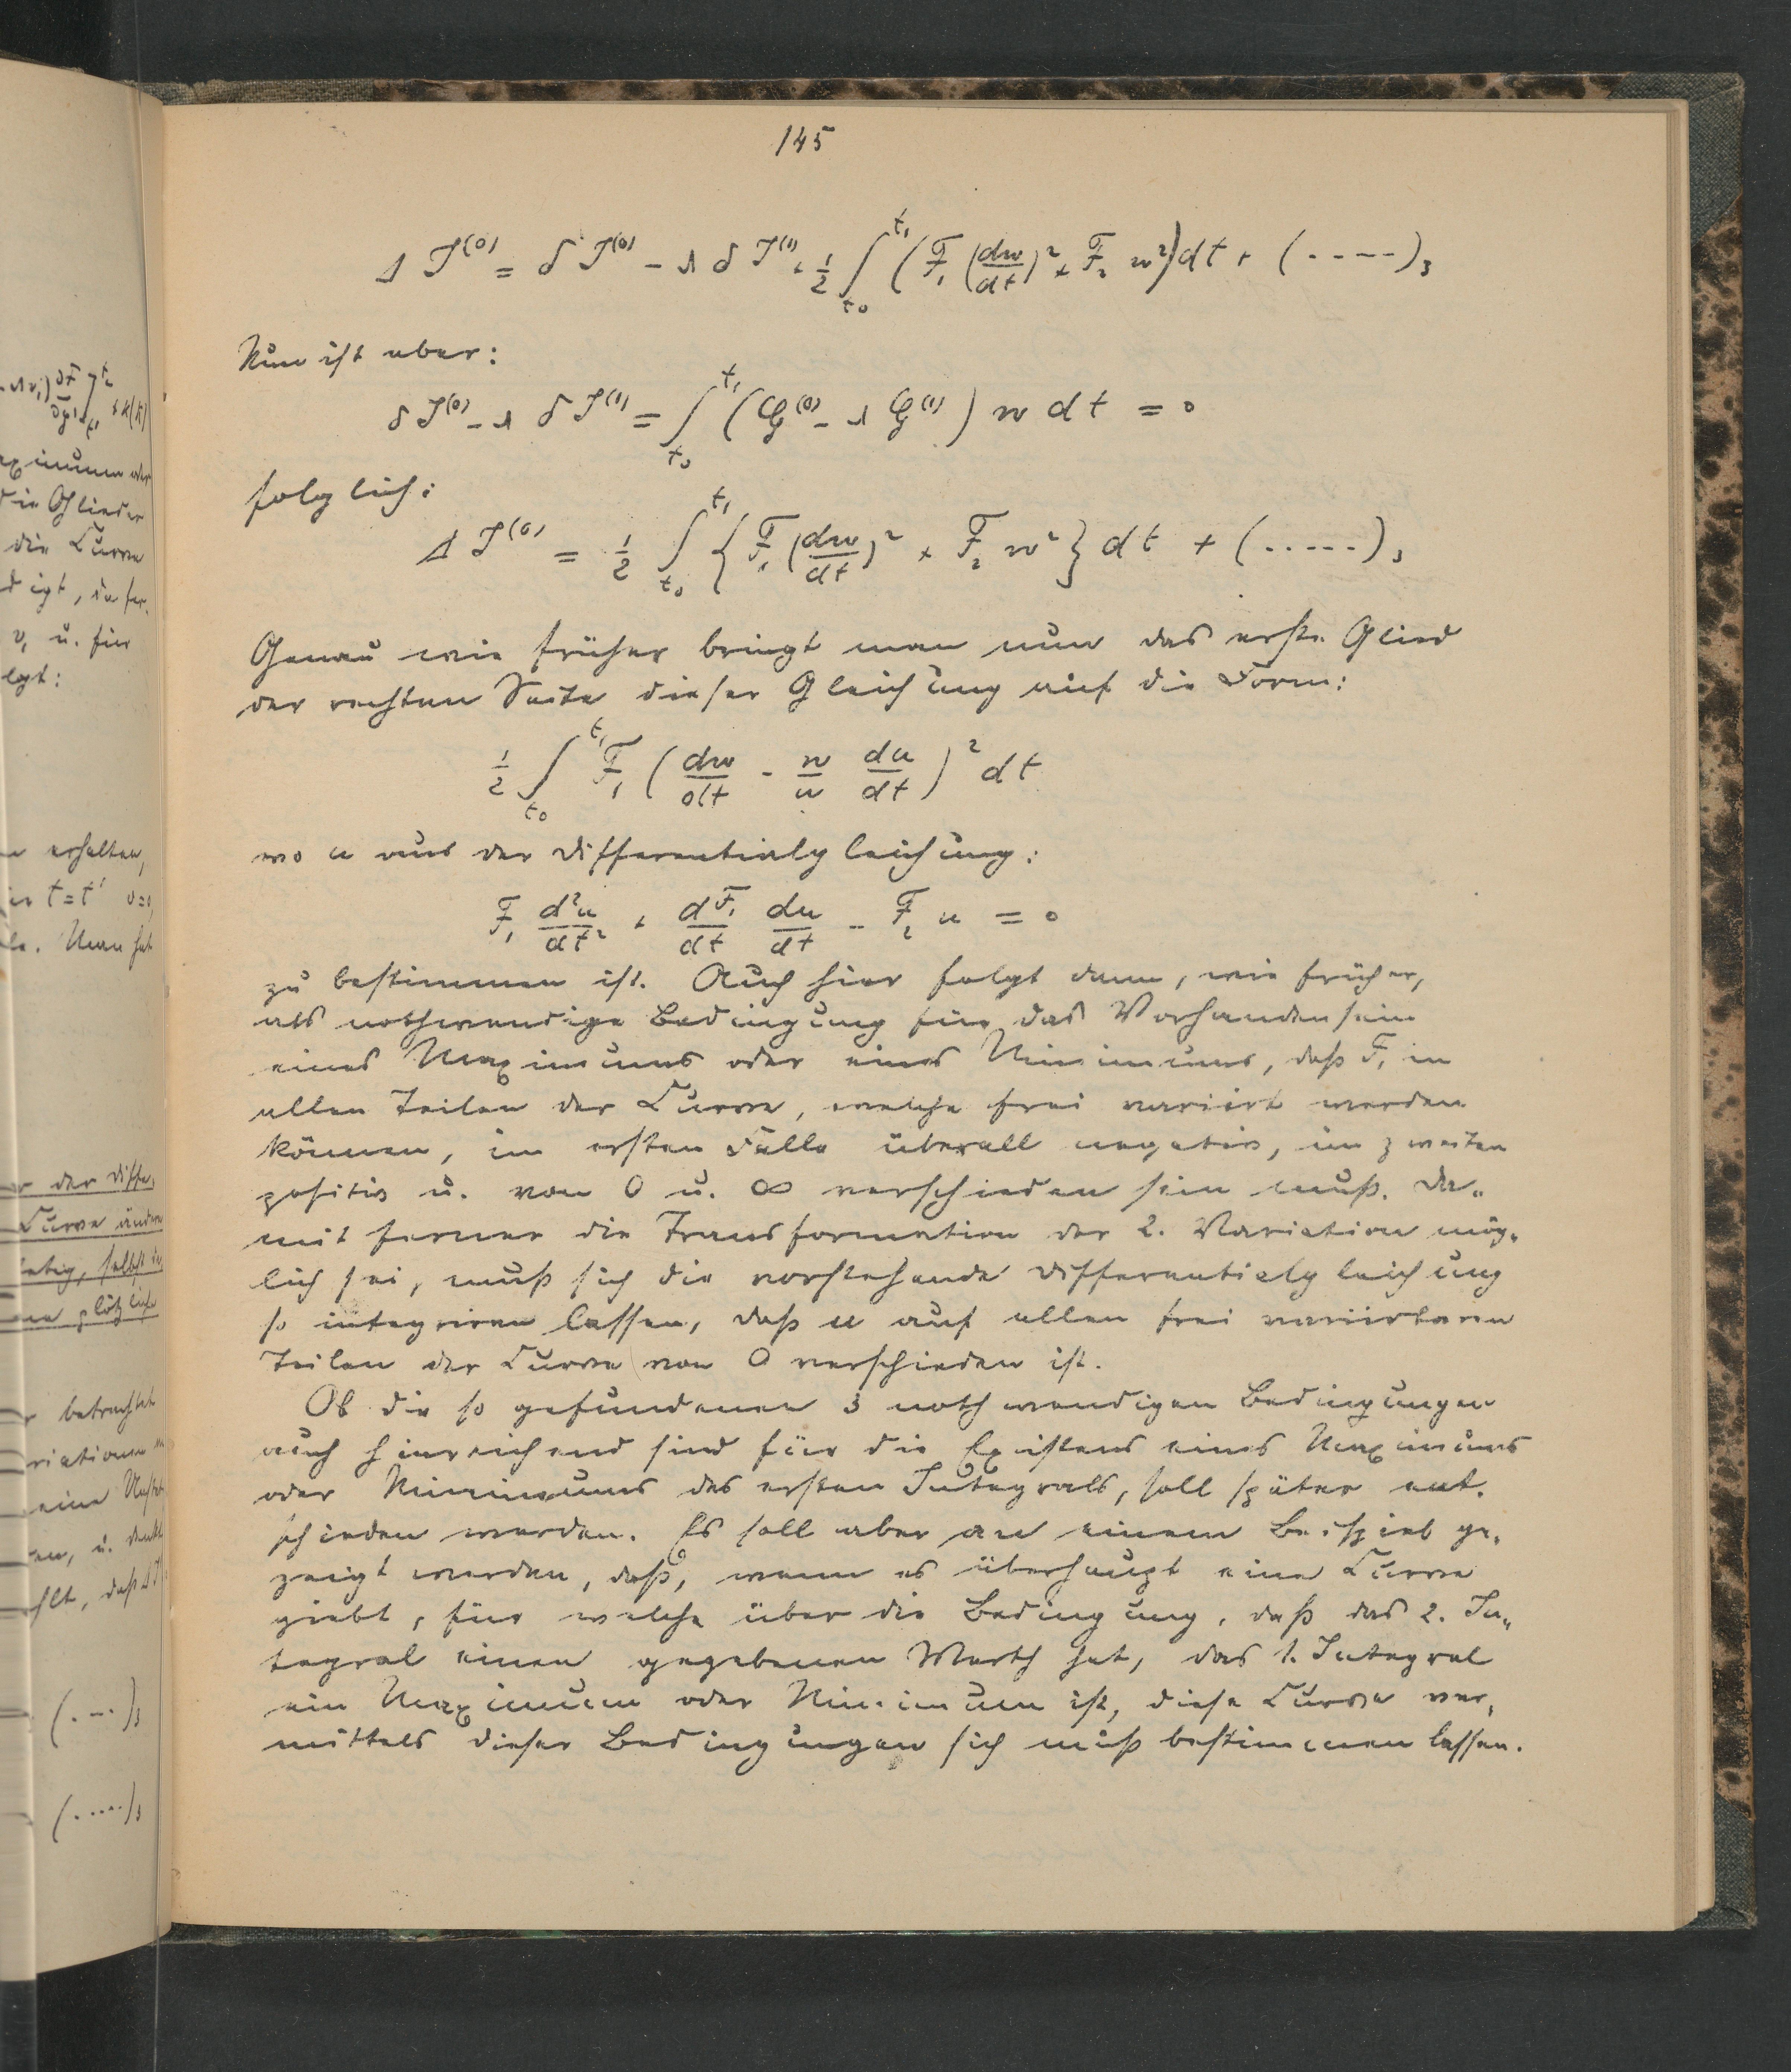 145
Δ J⁽⁰⁾ = δ J⁽⁰⁾ − λ δ J⁽¹⁾ + ½ ∫_{t₀}^{t₁} (F₁ (dw/dt)² + F₂ w²) dt + (....)₃
Nun ist aber:
δ J⁽⁰⁾ − λ δ J⁽¹⁾ = ∫_{t₀}^{t₁} (G⁽⁰⁾ − λ G⁽¹⁾) w dt = 0
folglich:
Δ J⁽⁰⁾ = ½ ∫_{t₀}^{t₁} {F₁ (dw/dt)² + F₂ w²} dt + (.....)₃
Genau wie früher bringt man nun das erste Glied
der rechten Seite dieser Gleichung auf die Form:
½ ∫_{t₀}^{t₁} F₁ (dw/dt − w/u du/dt)² dt
wo u aus der Differentialgleichung:
F₁ d²u/dt² + dF₁/dt du/dt − F₂ u = 0
zu bestimmen ist. Auch hier folgt dann, wie früher,
als nothwendige Bedingung für das Vorhandensein
eines Maximums oder eines Minimums, daß F₁ in
allen Teilen der Curve, welche frei variirt werden
können, im ersten Falle überall negativ, im zweiten
positiv u. von 0 u. ∞ verschieden sein muß. Da-
mit ferner die Transformation der 2. Variation mög-
lich sei, muß sich die vorstehende Differentialgleichung
so integriren lassen, daß u auf allen frei variirbaren
Teilen der Curve von 0 verschieden ist.
Ob die so gefundenen 3 nothwendigen Bedingungen
auch hinreichend sind für die Existens eines Maximums
oder Minimums des ersten Integrals, soll später ent-
schieden werden. Es soll aber an einem Beispiel ge-
zeigt werden, daß, wenn es überhaupt eine Curve
giebt, für welche über die Bedingung, daß das 2. In-
tegral einen gegebenen Werth hat, das 1. Integral
ein Maximum oder Minimum ist, diese Curve ver-
mittels dieser Bedingungen sich muß bestimmen lassen.